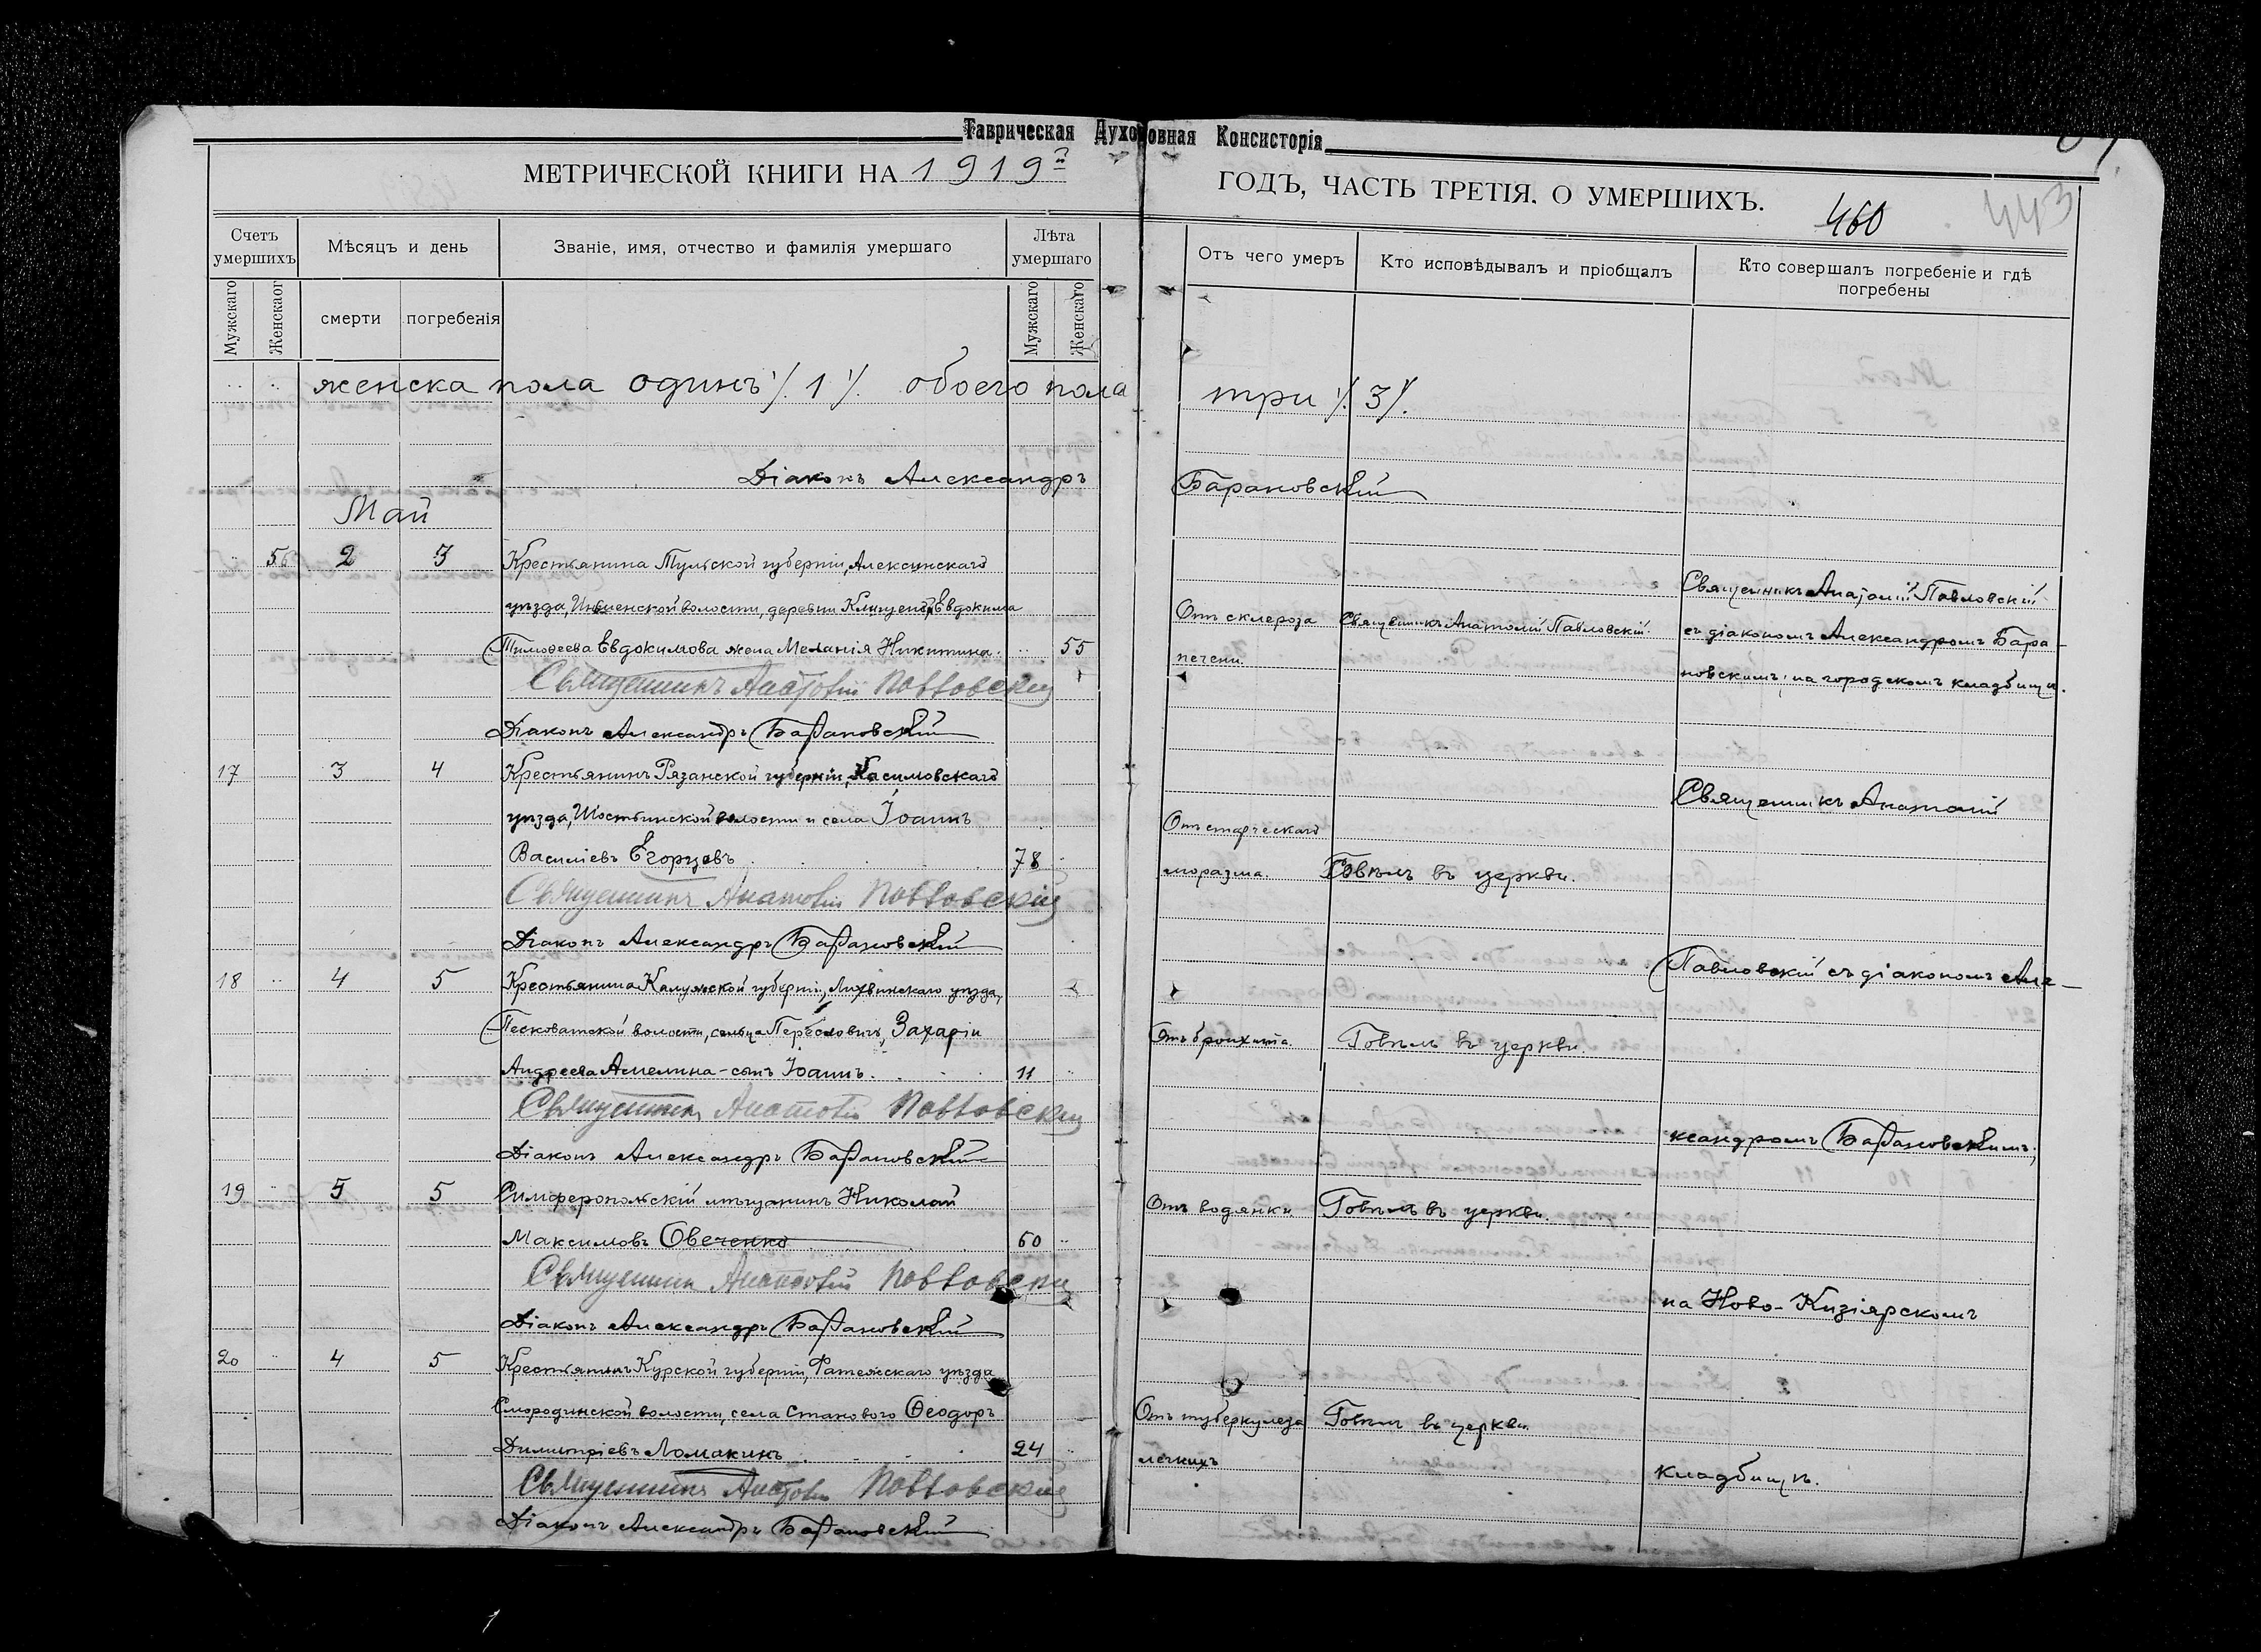 Таврическая Духовная Консисторія
МЕТРИЧЕСКОЙ КНИГИ НА 1919й
ГОДЪ, ЧАСТЬ ТРЕТІЯ. О УМЕРШИХЪ.
460
443
Счетъ умершихъ
Мѣсяцъ и день
Званіе, имя, отчество и фамилія умершаго
Лѣта умершаго
Отъ чего умеръ
Кто исповѣдывалъ и пріобщалъ
Кто совершалъ погребеніе и гдѣ погребены
Мужскаго
Женскаог
смерти
погребенія
Мужскаго
Женскаго
женска пола одинъ ⁒ 1 ⁒ обоего пола три ⁒ 3 ⁒
Діаконъ Александръ Барановскій
Май
5 2 3 Крестьянина Тульской губерніи, Алексинскаго
уѣзда, волости, деревни Евдокима
Тимоѳеева Евдокимова жена Меланія Никитина. 55
Отъ склероза
печени.
Священникъ Анатолій Павловскій.
Священникъ Анатолій Павловскій
съ діакономъ Александромъ Бара-
новскимъ, на городскомъ кладбищѣ.
Священникъ Анатолій Павловскій
Діаконъ Александръ Барановскій
17 3 4 Крестьянинъ Рязанской губерніи, Касимовскаго
уѣзда, Шостьинской волости и села Іоаннъ
Василіевъ Егорцевъ 78
Отъ старческаго
моразма.
Говѣлъ въ церкви.
Священникъ Анатолій
Священникъ Анатолій Павловскій
Діаконъ Александръ Барановскій
18 4 5 Крестьянина Калужской губерніи, Лихвинскаго уѣзда,
Песковатской волости, сельца Пересловичъ, Захаріи
Андреева Амелина - сынъ Іоаннъ. 11
Отъ бронхита.
Говѣлъ въ церкви.
Павловскій съ діакономъ Але-
Священникъ Анатолій Павловскій
Діаконъ Александръ Барановскій
ксандромъ Барановскимъ,
19 5 5 Симферопольскій мѣщанинъ Николай
Максимовъ Овеченко 60
Отъ водянки.
Говѣлъ въ церкви.
Священникъ Анатолій Павловскій
Діаконъ Александръ Барановскій
на Ново-Кизіярскомъ
20 4 5 Крестьянинъ Курской губерніи, Фатежскаго уѣзда
Смородинской волости, села Станового Ѳеодоръ
Димитріевъ Ломакинъ 24
Отъ туберкулеза
легкихъ
Говѣлъ въ церкви.
кладбищѣ.
Священникъ Анатолій Павловскій
Діаконъ Александръ Барановскій